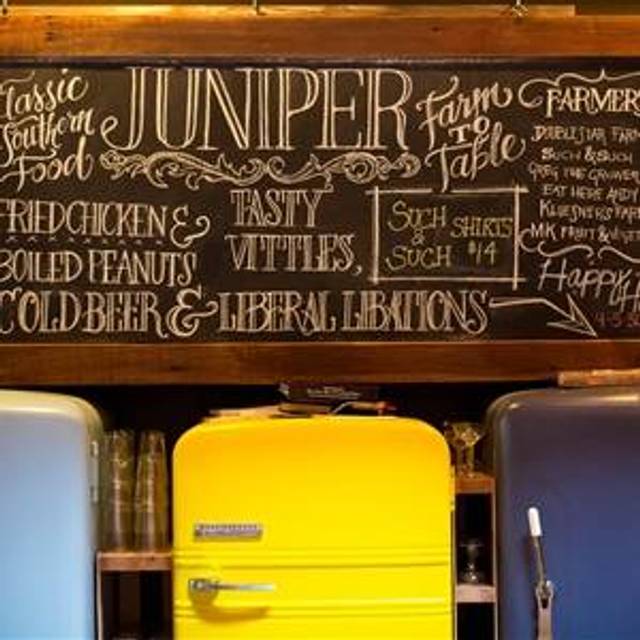 Classic
Southern
Food
JUNIPER
Farm
TO
Table
FRIED CHICKEN &
BOILED PEANUTS
TASTY
VITTLES,
SUCH
&
SUCH
SHIRTS
$14
COLD BEER & LIBERAL LIBATIONS
FARMER
DOUBLE STAR FAR
SUCH & SUCH
GREG THE GROWER
EAT HERE AND
MK FRUIT &
Happy H